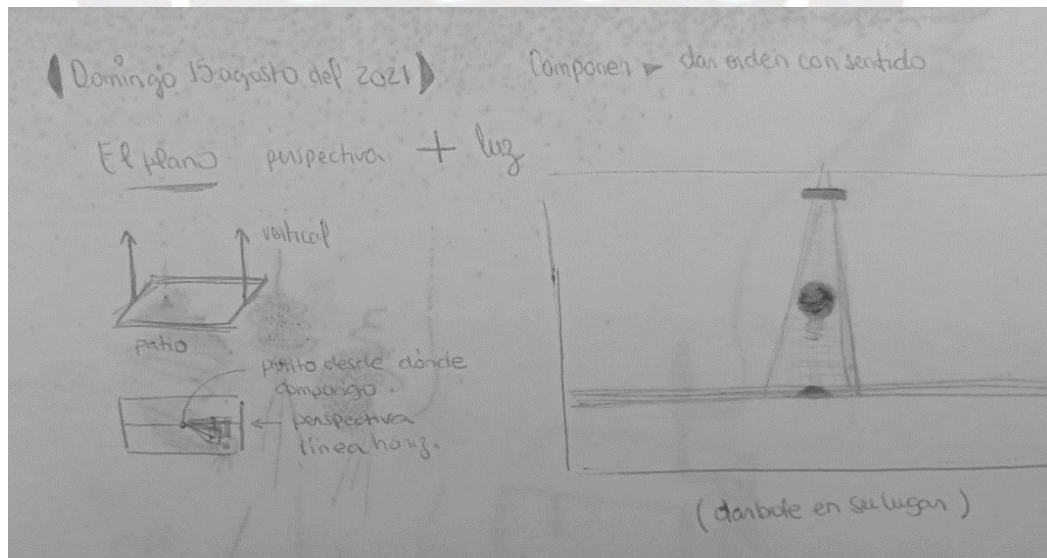 Domingo 15 agosto del 2021
Componer ► dar orden con sentido
El plano perspectiva + luz
vertical
patio
punto desde dónde
compongo.
← perspectiva
línea horiz.
(dar bote en su lugar)